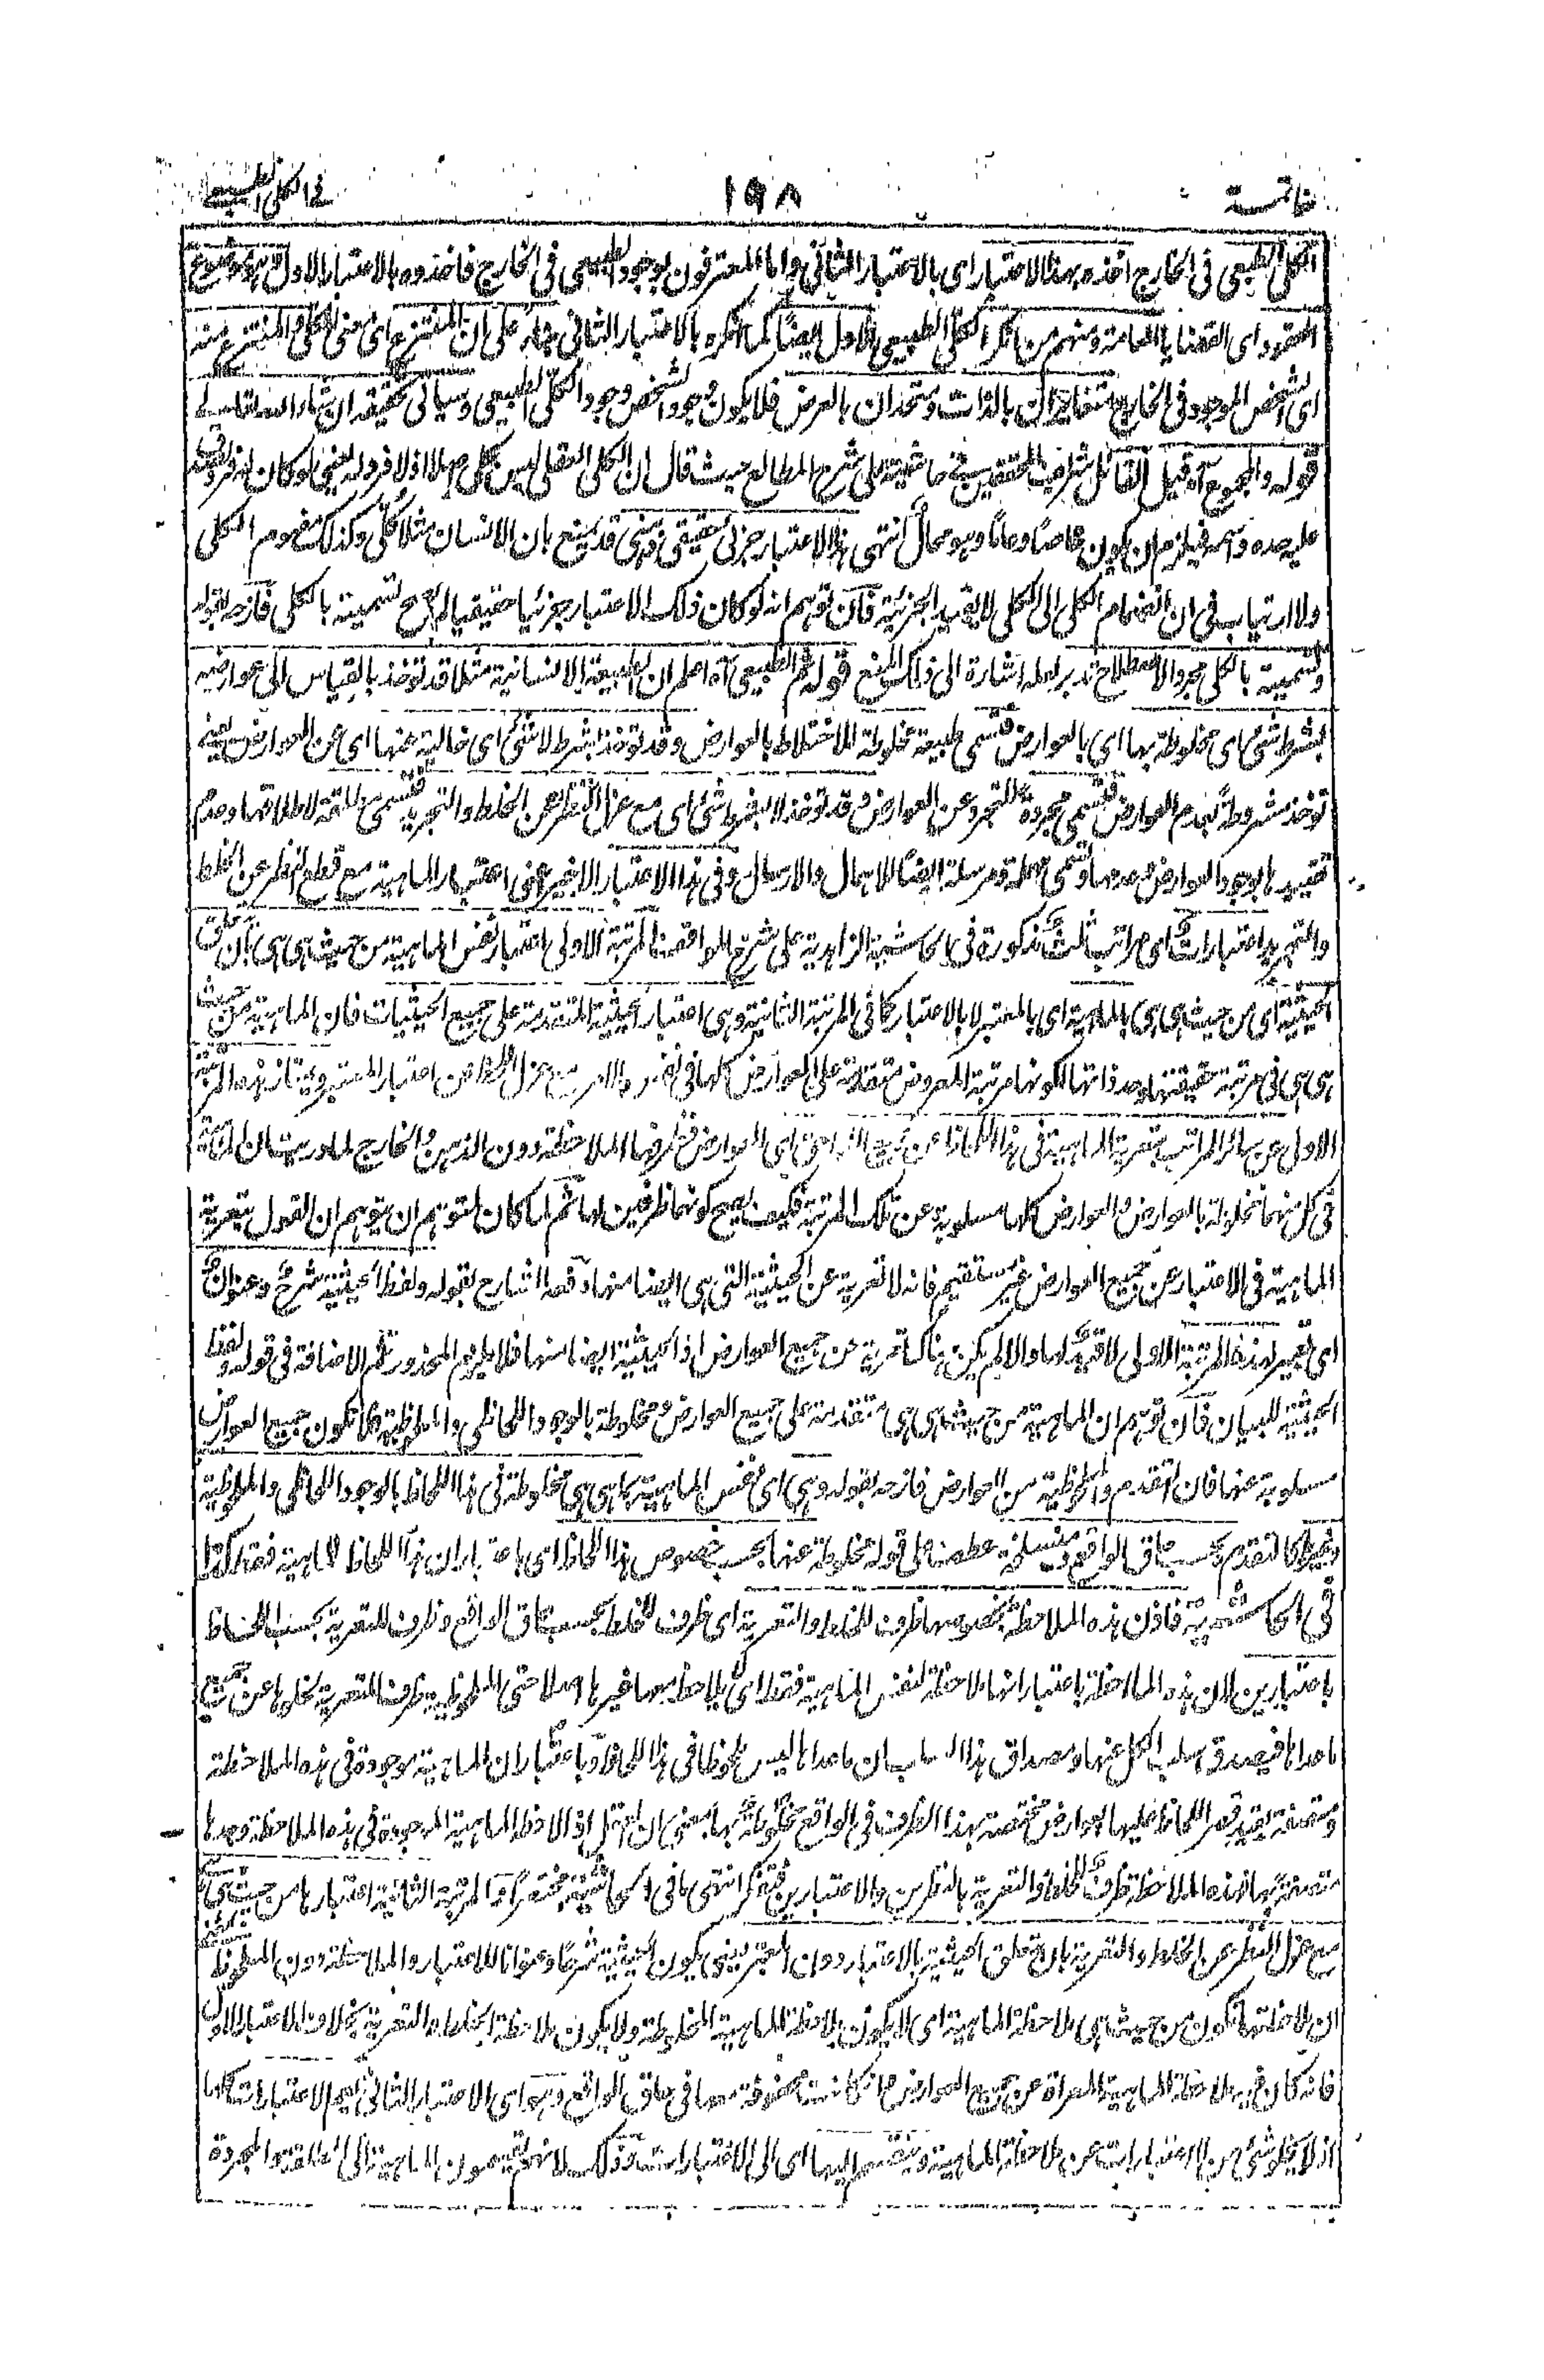 خاتمة ١٩٨ في الكلي الطبيعي
الكلي الطبيعي في الخارج اخذه بهذا الاعتبار اي بالاعتبار الثاني واما المعترفون بوجود الطبيعي في الخارج فاخذوه بالاعتبار الاول وهو موضوع
اي القضايا العامة ومنهم من انكر الكلي الطبيعي بالاول ايضا كما انكره بالاعتبار الثاني بناء على ان المنتزع اي معنى الكلي والمنتزع عنه
اي الشخص الموجود في الخارج متغايران بالذات ومتحدان بالعرض فلا يكون وجود الشخص وجود الكلي الطبيعي وسياتي تحقيقه ان شاء الله تعالى
قوله والمجموع آه قيل القائل شريف المحققين في حاشيته على شرح المطالع حيث قال ان الكلي العقلي ليس بكلي اصلا اذ لا فرد له يعني لو كان له فرد
عليه حده واسمه فيلزم ان يكون خاصا وعاما وهو محال انتهى الاعتبار جزئي حقيقي قد يمنع بان الانسان مثلا كلي وكذلك مفهوم الكلي
ولا ارتياب في ان انضمام الكلي الى الكلي لا يفيد الجزئية فان توهم انه لو كان ذلك الاعتبار جزئيا حقيقيا لم يصح تسميته بالكلي فازحه بقوله
وتسميته بالكلي مجرد الاصطلاح تدبر لعله اشارة الى ذلك المنع قوله ثم الطبيعي آه اعلم ان الطبيعة الانسانية مثلا قد توخذ بالقياس الى عوارضه
بشرط شئ اي مخلوطة بها اي بالعوارض فتسمى طبيعة مخلوطة للاختلاط بالعوارض وقد توخذ بشرط لا شئ اي خالية عنها اي عن العوارض يعني
توخذ مشروطة بعدم العوارض فتسمى مجردة للتجرد عن العوارض وقد توخذ لا بشرط شئ اي مع عزل النظر عن الخلط والتجريد فتسمى مطلقة لاطلاقها وعدم
تقييدها بوجود العوارض وعدمها وتسمى مهملة ومرسلة ايضا للاهمال والارسال وفي هذا الاعتبار الاخير اعني اعتبار الماهية مع قطع النظر عن الخلط
والتجريد اعتبارات اي مراتب ثلث مذكورة في الحاشية الزاهدية على شرح المواقف المرتبة الاولى اعتبار نفس الماهية من حيث هي هي بان تتعلق
الحيثية اي من حيث هي هي بالماهية اي بالمعتبر لا بالاعتبار كما في المرتبة الثانية وهي اعتبار حيثية المتقدمة على جميع الحيثيات فان الماهية من حيث
هي هي في مرتبة حقيقتها وحد ذاتها لكونها مرتبة المعروض متقدمة على العوارض كلها في نفس الامر مع عزل عن اعتبار المعتبر ويمتاز هذه المرتبة
الاولى عن سائر المراتب بتعرية الماهية في هذا اللحاظ عن جميع اي العوارض فظرفها الملاحظة دون الذهن والخارج لما دريت ان الماهية
في كل منهما مخلوطة بالعوارض والعوارض كلها مسلوبة عن تلك المرتبة فكيف يصح كونهما ظرفين لها ثم لما كان لمتوهم ان يتوهم ان القول بتعرية
الماهية في الاعتبار عن جميع العوارض غير مستقيم فانه لا تعرية عن الحيثية التي هي ايضا منها دفعه الشارح بقوله ولفظ الحيثية شرح وعنوان
اي تعبير لهذه المرتبة الاولى لا قيد لها والا لم يكن هناك تعرية عن جميع العوارض اذ الحيثية ايضا منها فلا يلزم المحذور ثم الاضافة في قوله ولفظ
الحيثية للبيان فان توهم ان الماهية من حيث هي هي متقدمة على جميع العوارض ومخلوطة بالوجود اللحاظي والملحوظية فلا تكون جميع العوارض
مسلوبة عنها فان التقدم والملحوظية من العوارض فازحه بقوله وهي اي نفس الماهية بما هي هي مخلوطة في هذا اللحاظ بالوجود اللحاظي والملحوظية
وغيرها كالتقدم بحسب حاق الواقع ومنسلخة عطف على قوله مخلوطة عنها بحسب خصوص هذا اللحاظ اي باعتبار ان هذا اللحاظ لماهية فقط كذا
في الحاشية فاذن هذه الملاحظة بخصوصها ظرف للخلط والتعرية اي ظرف للخلط بحسب حاق الواقع وظرف للتعرية بحسب اللحاظ
باعتبارين لان هذه الملاحظة باعتبار انها ملاحظة لنفس الماهية فقط اي لا يلاحظ معها غيرها اصلا حتى الملحوظية ظرف للتعرية لخلوها عن جميع
ما عداها فيصدق سلب الكل عنها ومصداق هذا السلب ان ما عداها ليس ملحوظا في هذا اللحاظ وباعتبار ان الماهية موجودة في هذه الملاحظة
ومتصفة بقيد قصر اللحاظ عليها العوارض مختصة بهذا الظرف في الواقع مخلوطة بها بمعنى ان العقل اذا لاحظ الماهية الموجودة في هذه الملاحظة وجدها
متصفة بها فهذه الملاحظة ظرف للخلط والتعرية بالنظرين والاعتبارين فتفكر انتهى ما في الحاشية مختصرا المرتبة الثانية اعتبارها من حيث هي
مع عزل النظر عن الخلط والتعرية بان تتعلق الحيثية بالاعتبار دون المعتبر يعني يكون الحيثية شرحا وعنوانا للاعتبار والملاحظة دون الملحوظ
ان ملاحظتها تكون من حيث هي ملاحظة الماهية اي لا يكون ملاحظة الماهية المخلوطة ولا يكون ملاحظة الخلط والتعرية بخلاف الاعتبار الاول
فانه كان فيه ملاحظة الماهية المعراة عن جميع العوارض وان كانت محفوفة معها في حاق الواقع وهو اي الاعتبار الثاني يعم الاعتبارات كلها
اذ لا يخلو شئ من الاعتبارات عن ملاحظة الماهية وينقسم اليها اي الى الاعتبارات وذلك لانهم يقسمون الماهية الى المطلقة والمجردة